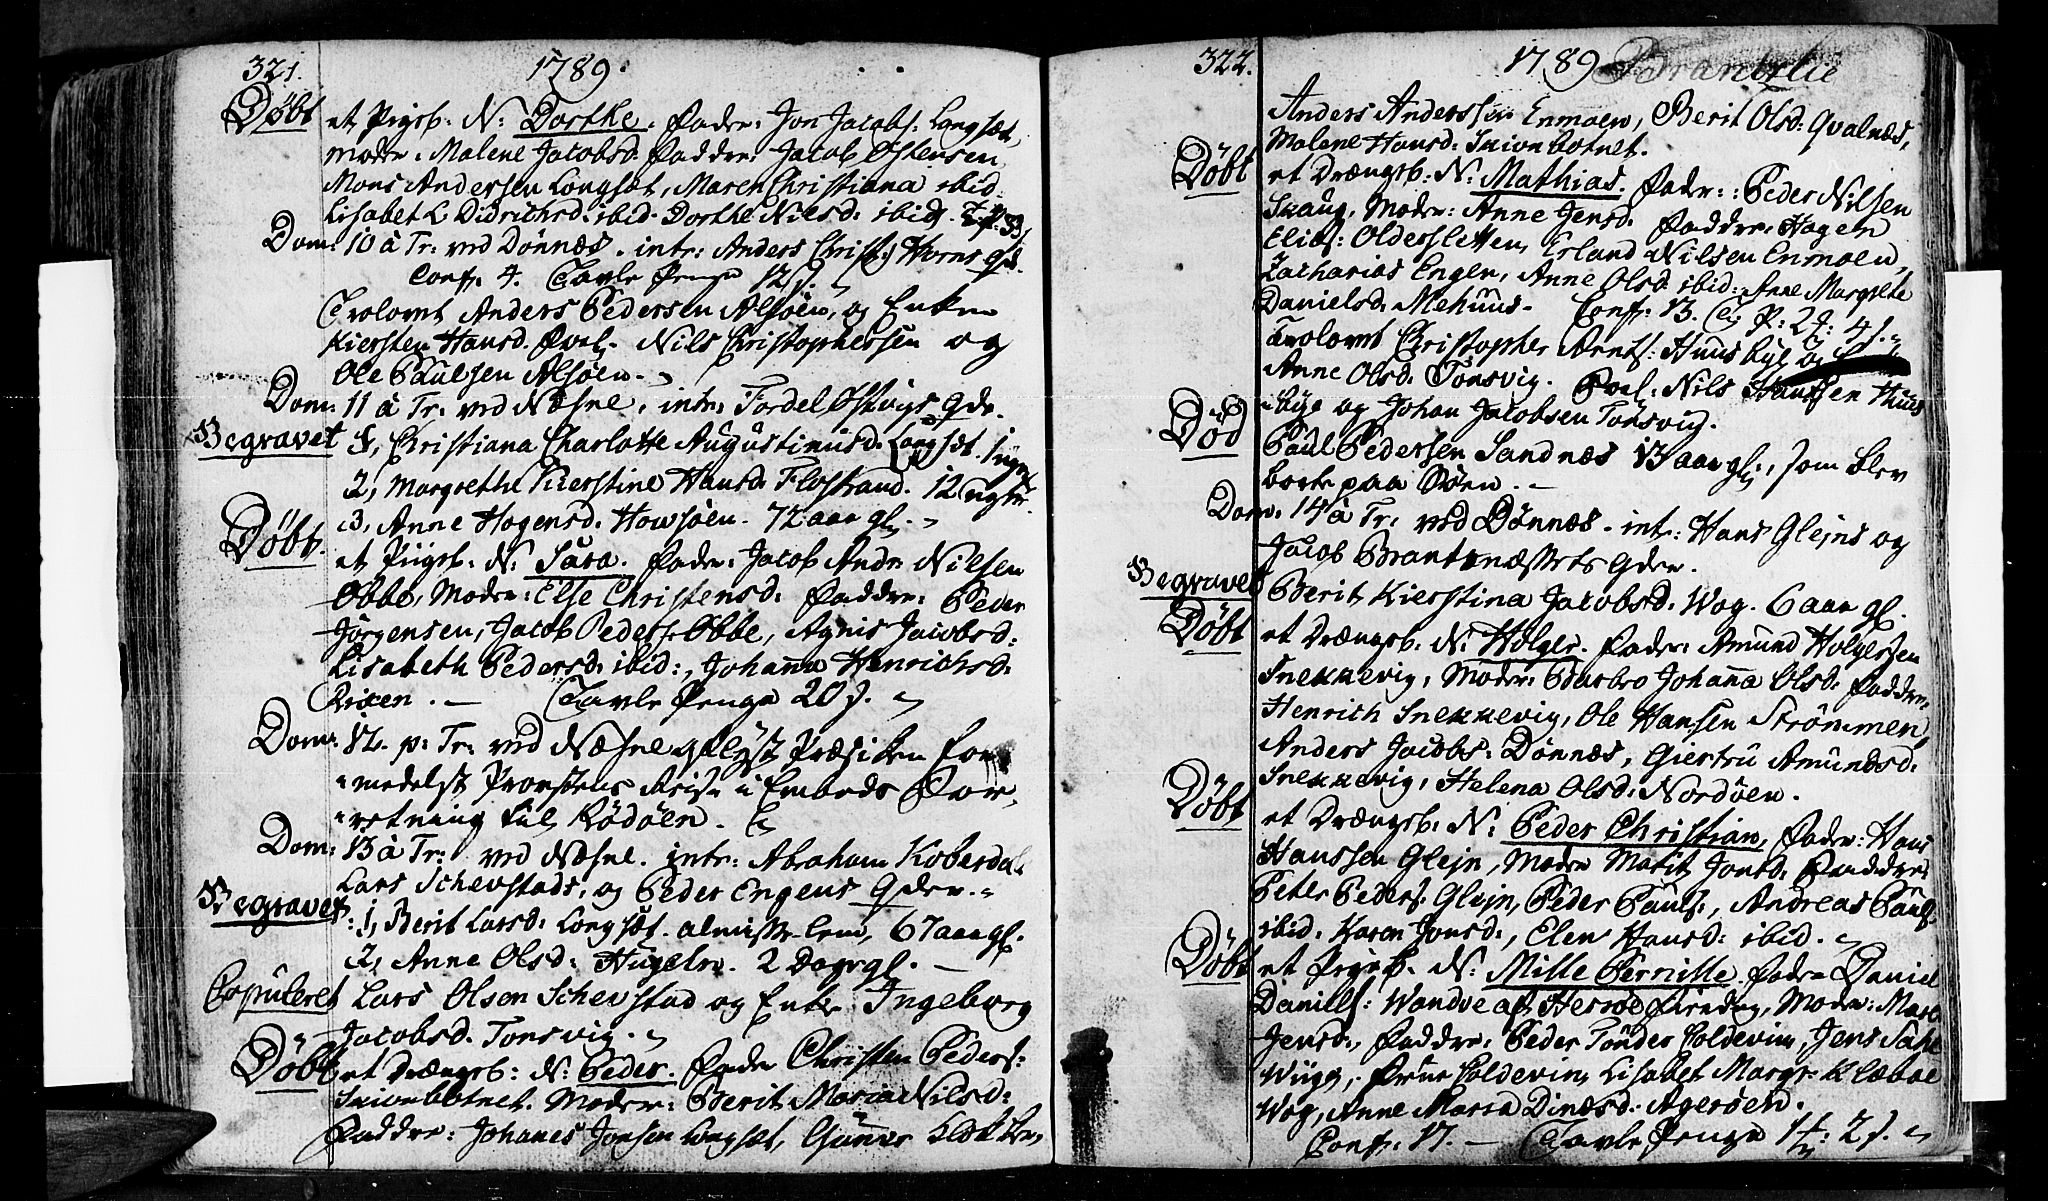 321. 1789.
Döbt et Pigeb: N: Dorthe. Fader: Jon Jacobs: Langsæt,
Moder: Malene Jacobsd: Faddre: Jacob Østensen
Mons Andersen Langsæt, Maren Christiana ibid:
Lisabet L. Didrichsd: ibid. Dorthe Nilsd: ibid.
Dom: 10 à Tr: ved Dönnæs. intr: Anders Christ: Horns Qd.
Conf: 4. Tavle Penge 12 s.
Trolovet Anders Pedersen Alsöen, og Enken
Kiersten Hansd. Cavl. Nils Christophersen og
Ole Paulsen Alsöen.
Dom: 11 à Tr: ved Næsne, intr: Fordel Østvigs Qde.
Begravet 1, Christiana Charlotte Augustinusd: Langsæt.
2, Margrethe Kierstine Hansd: Flostrand. 12
3, Anne Hogensd: Howsöen. 72 aar gl.
Döbt. et Piigeb: N: Sara. Fader: Jacob Andr. Nilsen
Obbe, Moder: Else Christensd: Faddre: Peder
Jörgensen, Jacob Peders: Obbe, Agnis Jacobsd:
Lisabeth Pedersd: ibid:, Johanna Henrichsd:
Rixen. Tavle Penge 20 s.
Dom: 12. p: Tr: ved Næsne oplyst Præsiken for-
medelst Provstens Reise i Embeds For-
retning til Rödöen.
Dom: 13 à Tr: ved Næsne. intr: Abraham Koberdal
Lars Schevstads, og Peder Engens Qder.
Begravet: 1, Berit Larsd: Langsæt. almisse-lem, 67 aar gl.
2, Anne Olsd: Hugelen. 2 Dage gl.
Copuleret Lars Olsen Schevstad og Enke Ingeborg
Jacobsd. Tonsvig.
Döbt et Drængeb: N: Peder. Fader Christen Peders:
Skivenbotnet. Moder: Berit Maria Nilsd:
Faddre: Johanes Jonsen Langsæt, Gunner
322. 1789
Anders Anderssen Enmoen, Berit Olsd: Qvalnæs,
Malene Hansd: Skivenbotnet.
Döbt et Drængeb. N: Mathias. Fader: Peder Nilsen
Skaug, Moder: Anne Jensd. Faddre: Hagen
Elias: Oldersletten, Erland Nilsen Enmoen,
Zacharias Engen, Anne Olsd ibid: Anne Margrete
Danielsd. Mehuus. Conf: 13.
Trolovet Christopher Arntz: Huusbye og
Anne Olsd: Tonsvig. Cavl: Nils Hanssen Huus-
bye og Johan Jacobsen Tonsvig.
Död Paul Pedersen Sandnæs 13 aar gl:, som blev
borte paa Söen.
Dom. 14 à Tr: ved Dönnæs. intr: Hans Glejns og
Jacob Brantznæssets Qder.
Begravet Berit Kierstina Jacobsd: Wog. 6 aar gl.
Döbt et Drængeb. N: Holger. Fader: Amund Holgersen
Snekkevig, Moder: Barbro Johanna Olsd: Faddre:
Henrich Snekkevig, Ole Hansen Strömmen,
Anders Jacobs: Dönnæs, Giertru Amundsd:
Snekkevig, Helena Olsd: Nordöen.
Döbt et Drængeb: N: Peder Christian, Fader: Hans
Hanssen Glejn, Moder Marit Jonsd: Faddre:
Peter Peders: Glejn, Peder Pauls:, Andreas Pauls:
ibid: Karen Jonsd:, Elen Hansd: ibid.
Döbt et Pigeb. N: Mille Pernille. Fader Daniel
Daniels: Wandve af Heröe Fierding, Moder: Maren
Jensd:, Faddre: Peder Tönder Coldevin, Jens
Wüge, Frue Coldevin, Lisabet Margr: Klæboe
Wog, Anne Marta Dinesd: Ageröen.
Conf: 17. Tavle Penge